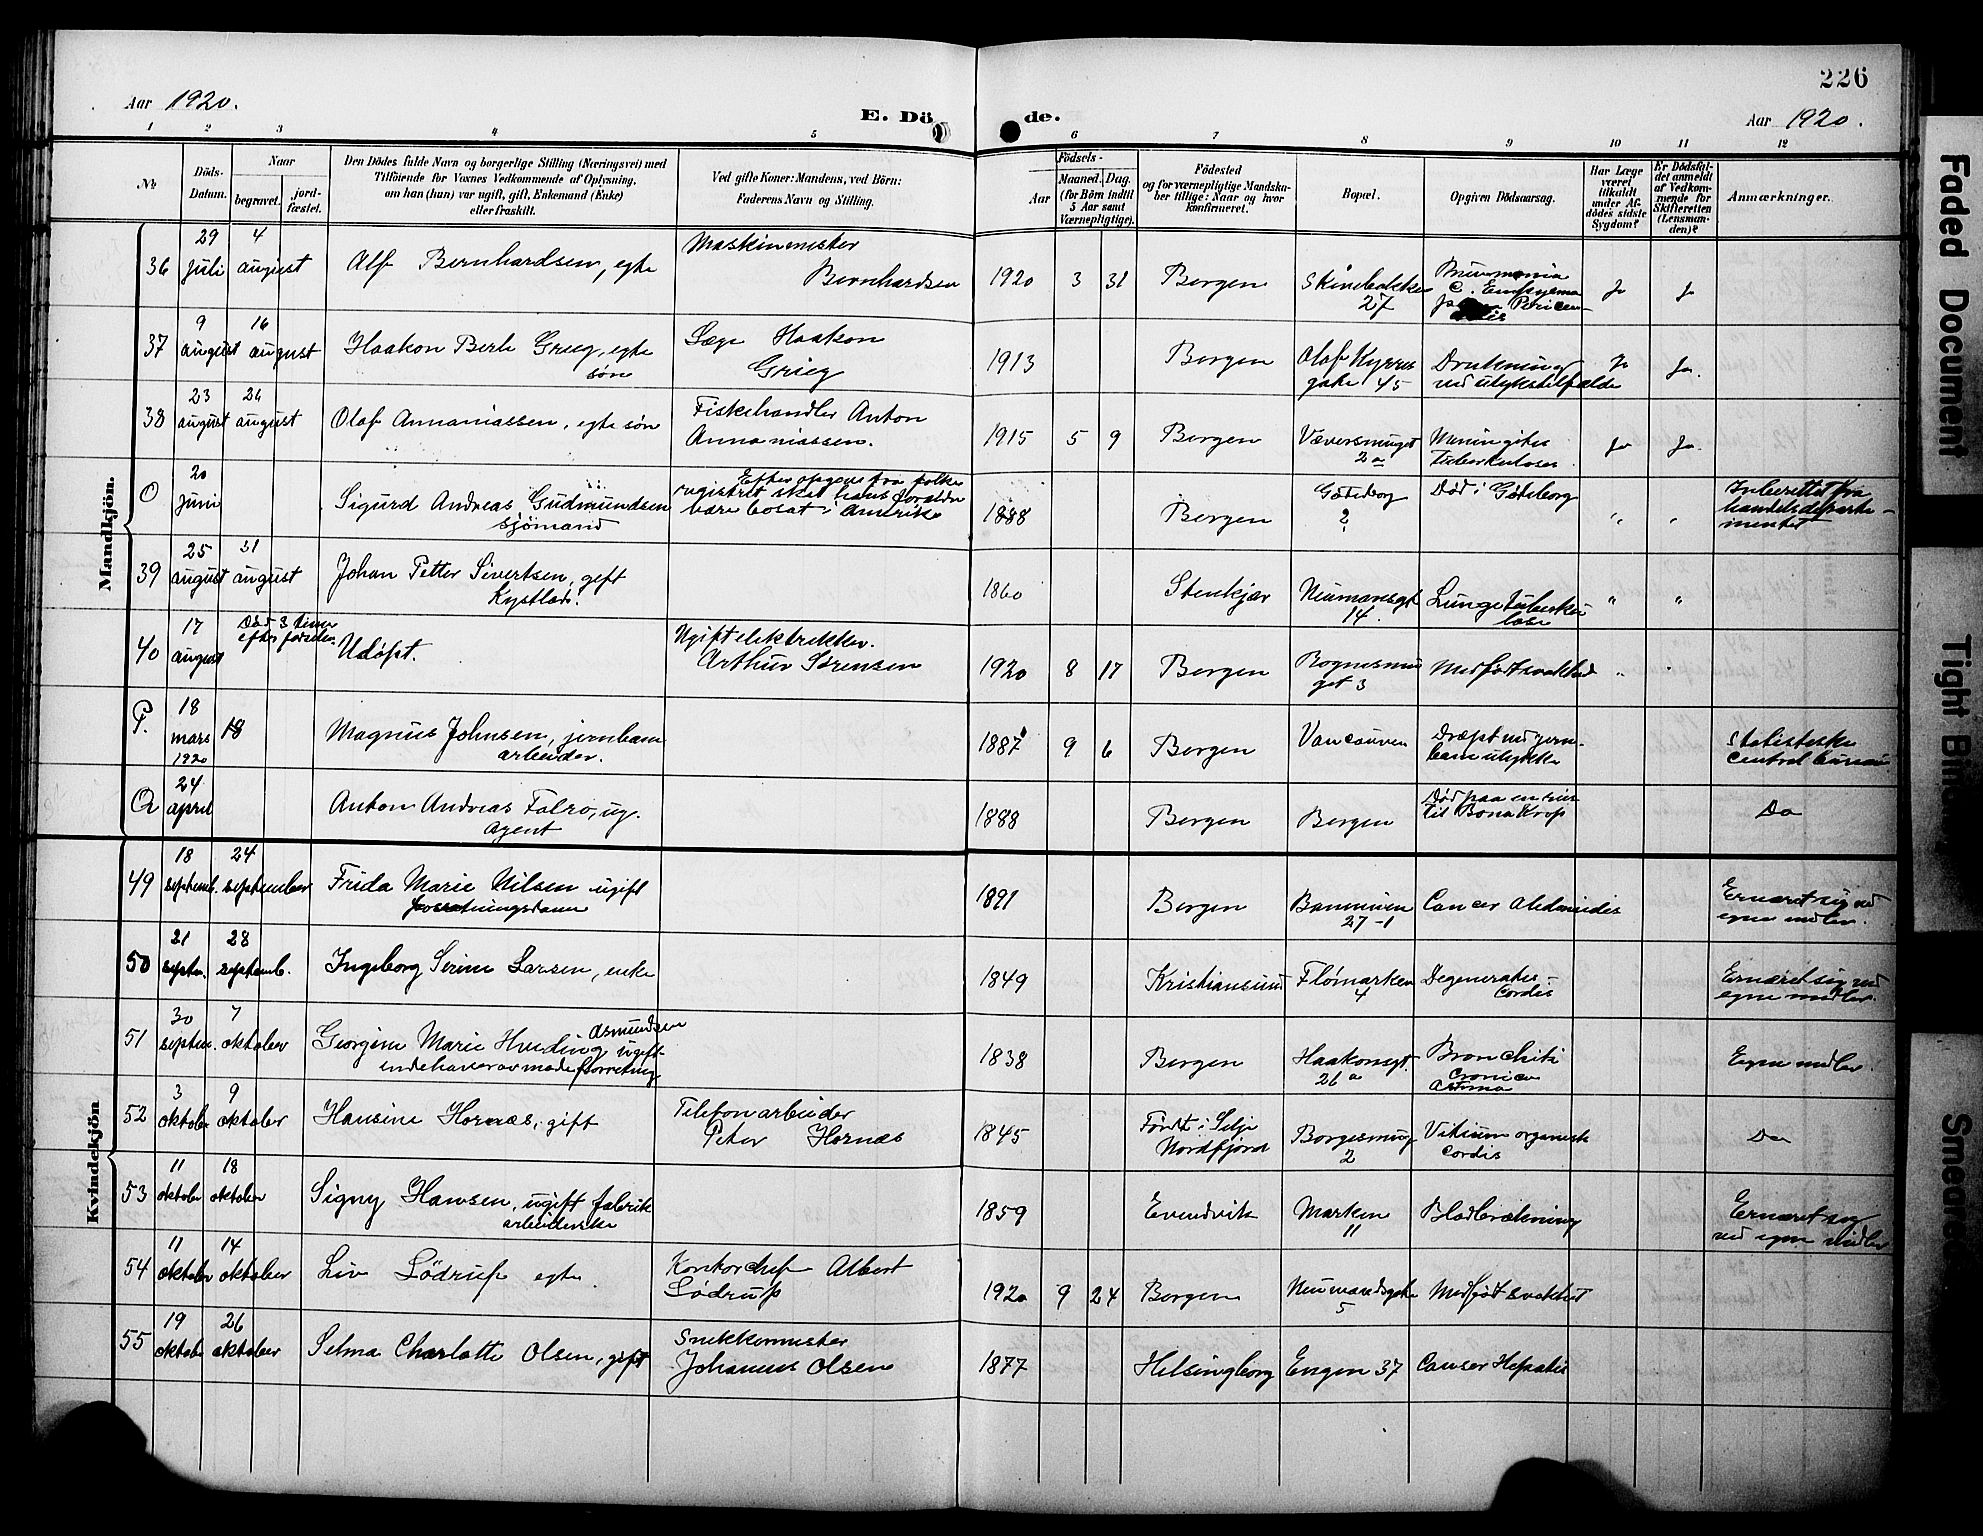 226
Aar 1920.
E. Dö de.
Aar 1920.
1 2 3 4 5 6 7 8 9 10 11 12
No
Döds-
Datum.
Naar
begravet.
jord-
fæstet.
Den Dödes fulde Navn og borgerlige Stilling (Næringsvei) med
Tilföiende for Voxnes Vedkommende af Oplysning,
om han (hun) var ugift, gift, Enkemand (Enke)
eller fraskilt.
Ved gifte Koner: Mandens, ved Börn:
Faderens Navn og Stilling.
Födsels-
Aar
Maaned. Dag.
(for Börn indtil
5 Aar samt
Værnepligtige).
Födested
og for værnepligtige Mandska-
ber tillige: Naar og hvor
konfirmeret.
Bopæl.
Opgiven Dödsaarsag.
Har Læge
været
tilkaldt
under Af-
dödes sidste
Sygdom?
Er Dödsfal-
det anmeldt
af Vedkom-
mende for
Skifteretten
(Lensman-
den)?
Anmærkninger.
Mandkjön.
36
29
juli
4
august
Alf Bernhardsen, egte
Maskinmester
Bernhardsen
1920 3 31 Bergen
27
Ja Ja
37
9
august
16
august
Haakon Berle Grieg, egte
søn
Læge Haakon
Grieg
1913 Bergen
Olaf Kyrres
gate 45
Drukning
ved ulykkestilfælde
Ja Ja.
38
23
august
26
august
Olaf Annaniassen, egte søn
Fiskehandler Anton
Annaniassen.
1915 5 9 Bergen
Væversmuget
2a
Meningites
tuberkuloser
Ja Ja.
O
20
juni
Sigurd Andreas Gudmundsen
sjömand
Efter opgave fra folke
registret skal hans forældre
være bosat i Amerika
1888 Bergen
Gøteborg
?
Død i Gøteborg
" "
Inberettet fra
handelsdeparte-
mentet
39
25
august
31
august
Johan Petter Sivertsen, gift
Kystlods.
1860 Stenkjær
Neumansgt.
14.
Lungetuberku
lose
" "
40
17
august
Død 3 timer
efter fødselen.
Udöpt.
Ugift elektriker.
Arthur Sørensen
1920 8 17 Bergen
Rognesmu
get 3
Medfødt svakhed
" "
P.
18
mars
1920
18
Magnus Johnsen, jernbane
arbeider.
1887 9 6 Bergen
Vancouver
Dræpt ved jern-
baneulykke
Statistiske
Central bureau
Q
24
april
Anton Andreas Falro, ug.
Agent
1888 Bergen Bergen
Død paa en reise
til
Do
Kvindekjön
49
18
septemb.
24
september
Frida Marie Nilsen ugift
forretningsdame
1891 Bergen
27-1
Cancer
Ernæret sig ved
egne midler.
50
21
septbr.
28
septemb.
Ingeborg Serine Larsen, enke
1849 Kristiansund
Flömarken
4
Degeneratis-
Cordis
Ernæret sig ved
egne midler.
51
30
septbr.
7
oktober
Georgine Marie Hvidding Asmundsen
ugift
indehaver av modeforretning
1838 Bergen
Haakonsgt.
26a
Bronchiti
Cronica
Astma
Egne midler.
52
3
oktober
9
oktober
Hansine Hornæs, gift
Telefonarbeider
Peter Hornæs
1845
Født i Selje
Nordfjord
Borgesmug
2
Vitium organisk
Cordis
Do
53
11
oktober
18
oktober
Signy Hansen, ugift fabrik
arbeiderske
1859 Evendvik
Marken
11
Blodbrækning
Ernæret sig
ved egne midler
54
11
oktober
14
oktober
Liv Lödrup egte.
Kontorchef Albert
Lödrup
1920 9 24 Bergen
Neumandsgate
5
Medfödt svakhet
55
19
oktober
26
oktober
Selma Charlotte Olsen, gift
Snekkermester
Johannes Olsen
1877 Helsingborg Engen 37 Canser Hepatis
Faded Document
Tight
Smeared